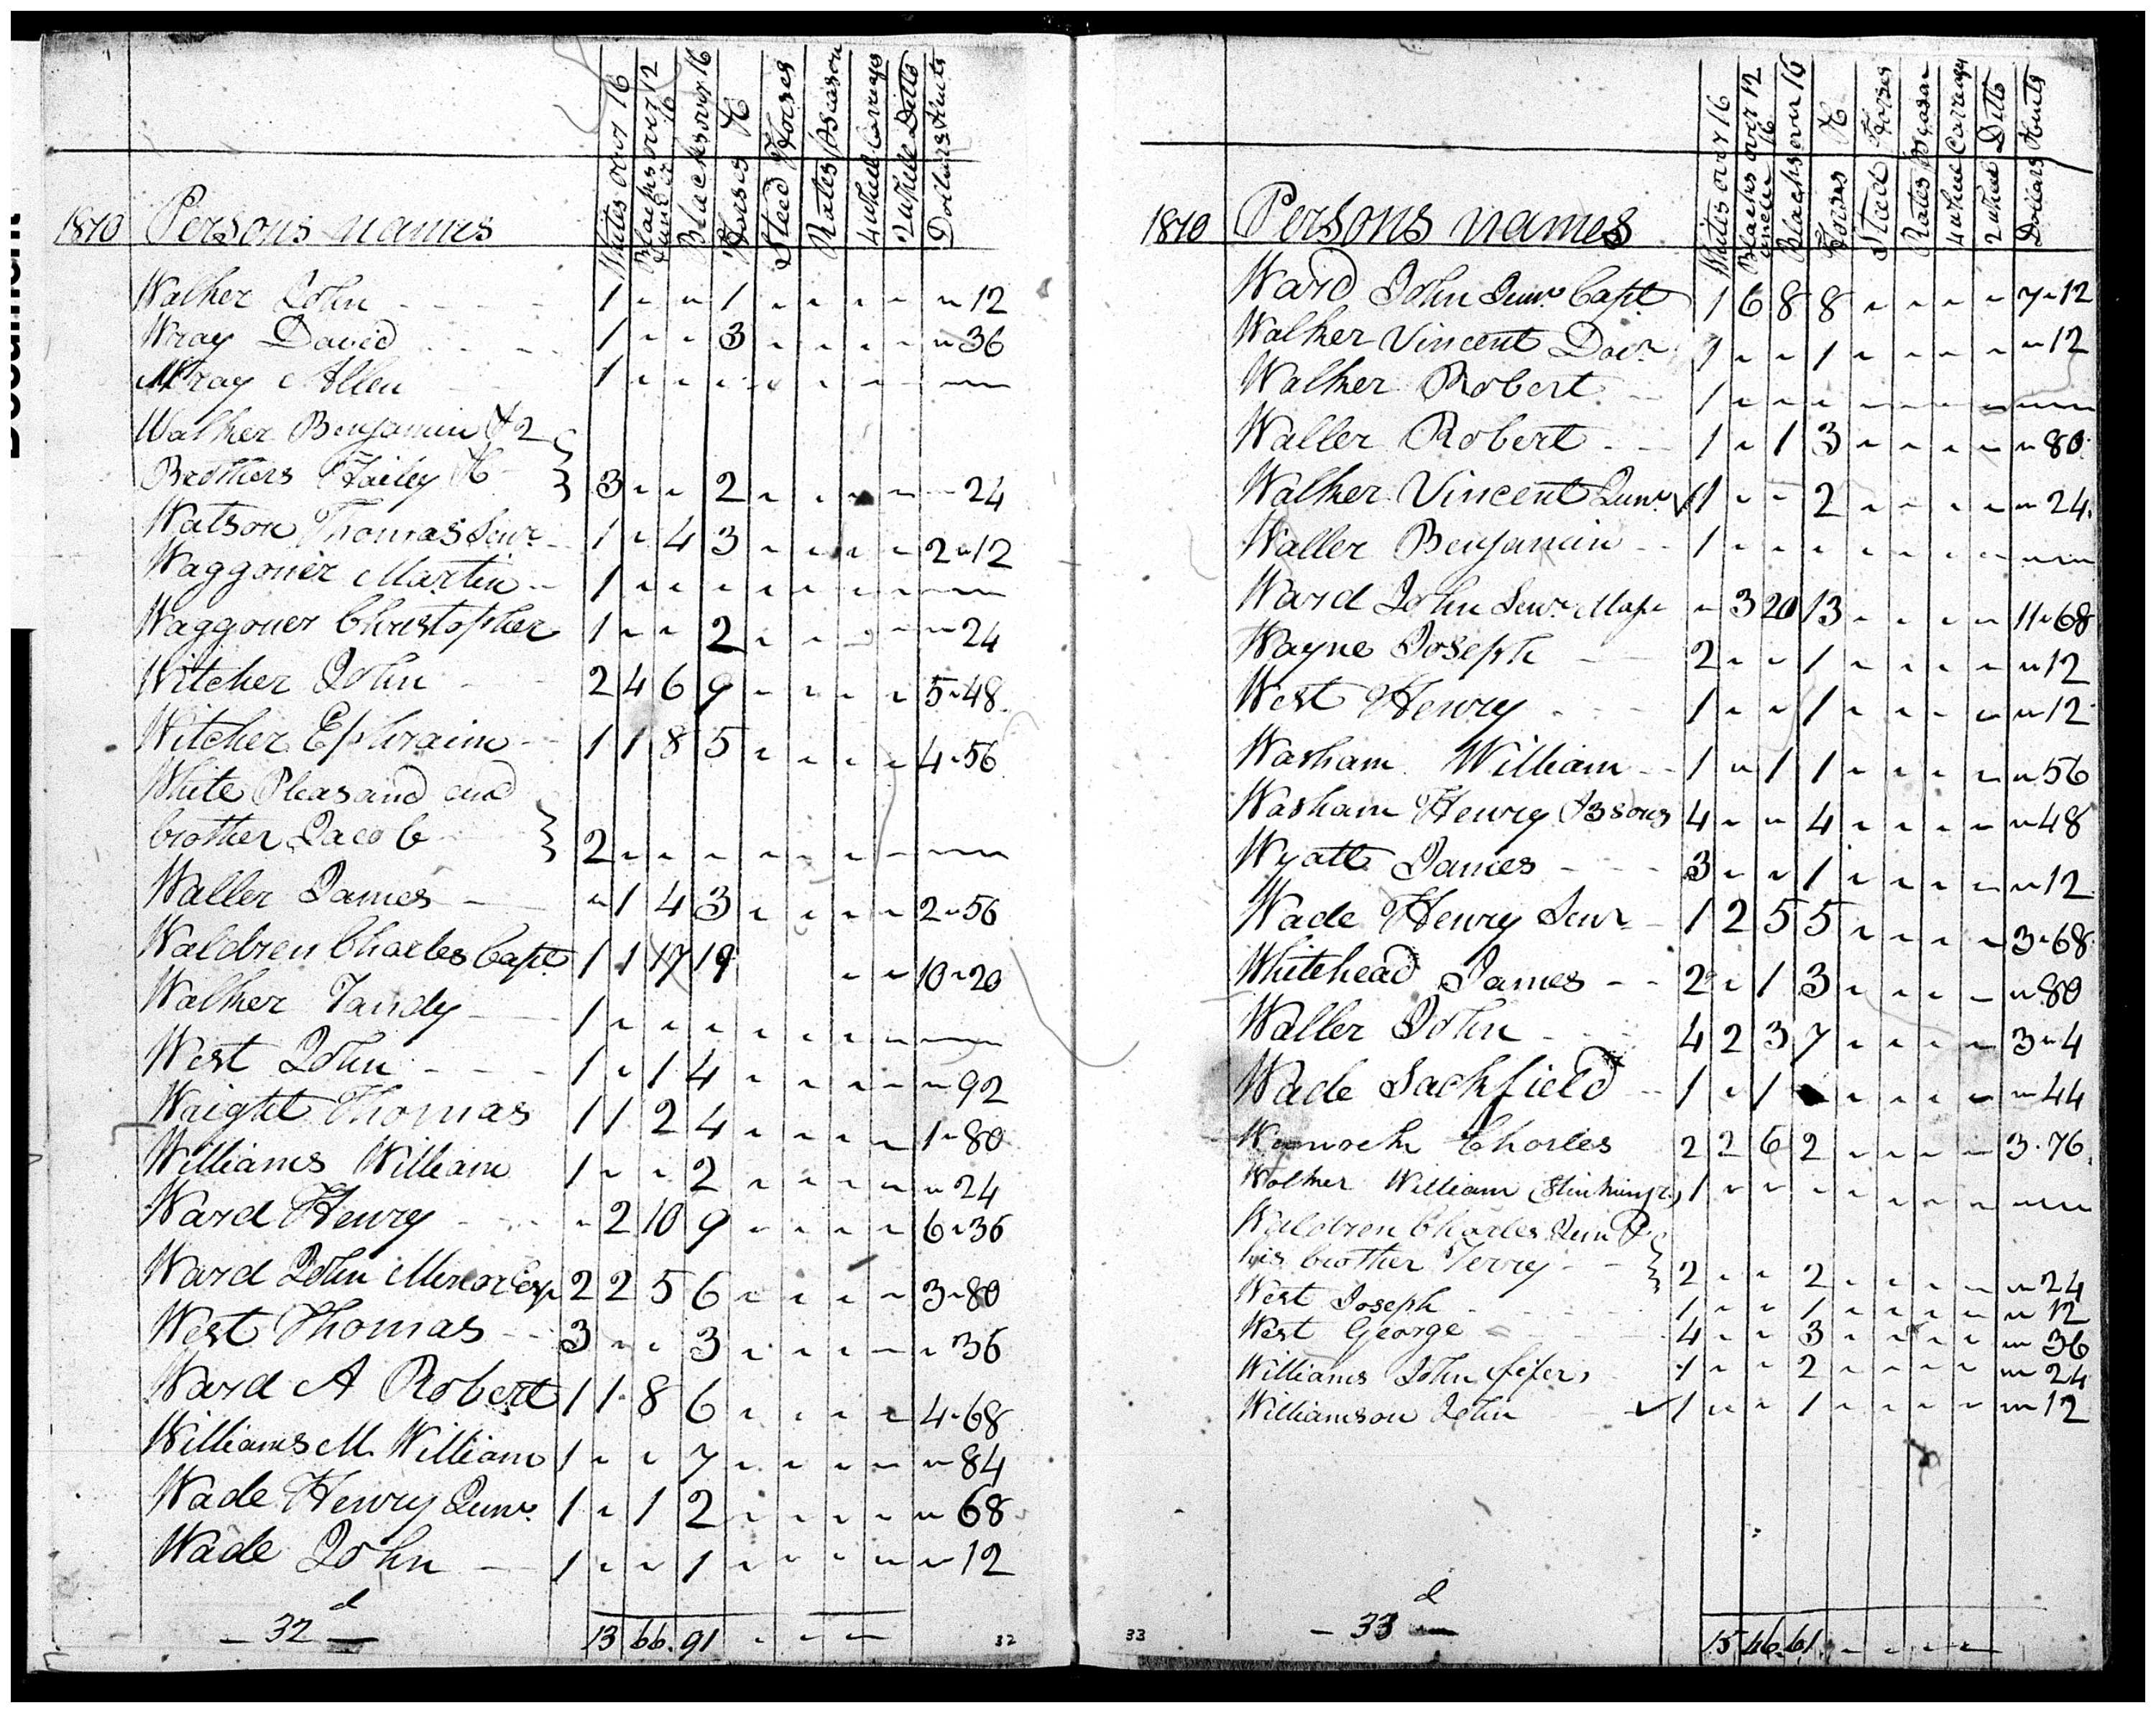 Document
Whites over 16
Blacks over 12 & under 16
Blacks over 16
Horses &c
Stud Horses
Rates pr Season
4 Wheel Carriages
2 Wheel Ditto
Dollars & cents
1810 Persons names
Walker John - - - - 1 " " 1 " " " " " 12
Wray David - - - - 1 " " 3 " " " " " 36
Wray Allen 1 " " " " " " " "
Walker Benjamin & 2 }
Brothers Hailey &c } 3 " " 2 " " " " " 24
Watson Thomas Senr. 1 " 4 3 " " " " 2 " 12
Waggoner Martin - 1 " " " " " " " "
Waggoner Christopher 1 " " 2 " " " " " 24
Witcher John - 2 4 6 9 " " " " 5 " 48
Witcher Ephraim - 1 1 8 5 " " " " 4 " 56
White Pleasand and }
brother Jacob } 2 " " " " " " " "
Waller James - " 1 4 3 " " " " 2 " 56
Waldren Charles Capt. 1 1 17 19 " " 10 " 20
Walker Tandy - 1 " " " " " " " "
West John - - - 1 " 1 4 " " " " " 92
Waight Thomas 1 1 2 4 " " " " 1 " 80
Williams William 1 " " 2 " " " " " 24
Ward Henry - - " 2 10 9 " " " " 6 " 36
Ward John Minor Esqr 2 2 5 6 " " " " 3 " 80
West Thomas - 3 " " 3 " " " " " 36
Ward A Robert 1 1 8 6 " " " " 4 " 68
Williams M. William 1 " " 7 " " " " " 84
Wade Henry Junr. 1 " 1 2 " " " " " 68
Wade John - 1 " " 1 " " " " " 12
- 32 d - 13 66 91 " " " 32
Whites over 16
Blacks over 12 & under 16
Blacks over 16
Horses &c
Stud Horses
Rates pr Season
4 wheel Carriages
2 wheel Ditto
Dollars & cents
1810 Persons names
Ward John Junr. Capt. 1 6 8 8 " " " " 7 " 12
Walker Vincent 1 " " 1 " " " " " 12
Walker Robert - 1 " " " " " " " "
Waller Robert - - 1 " 1 3 " " " " " 80
Walker Vincent Junr. 1 " " 2 " " " " " 24
Waller Benjamin - - 1 " " " " " " " "
Ward John Senr. Majr " 3 20 13 " " " " 11 " 68
Wayne Joseph - 2 " " 1 " " " " " 12
West Henry - - - 1 " " 1 " " " " " 12
Washam William - - 1 " 1 1 " " " " " 56
Washam Henry & 3 sons 4 " " 4 " " " " " 48
Wyatt James - - - 3 " " 1 " " " " " 12
Wade Henry Senr - 1 2 5 5 " " " " 3 " 68
Whitehead James - - 2 " 1 3 " " " " " 80
Waller John - - 4 2 3 7 " " " " 3 " 4
Wade Sackfield - 1 " 1 " " " " " 44
Charles 2 2 6 2 " " " " 3 . 76
Walker William 1 " " " " " " " "
Waldren Charles Jun & }
his brother Terry - - } 2 " " 2 " " " " " 24
West Joseph - - 1 " " 1 " " " " " 12
West George - 4 " " 3 " " " " " 36
Williams John (fifer) 1 " " 2 " " " " " 24
Williamson John 1 " " 1 " " " " " 12
33 - 33 d - 15 46 61 " " " "